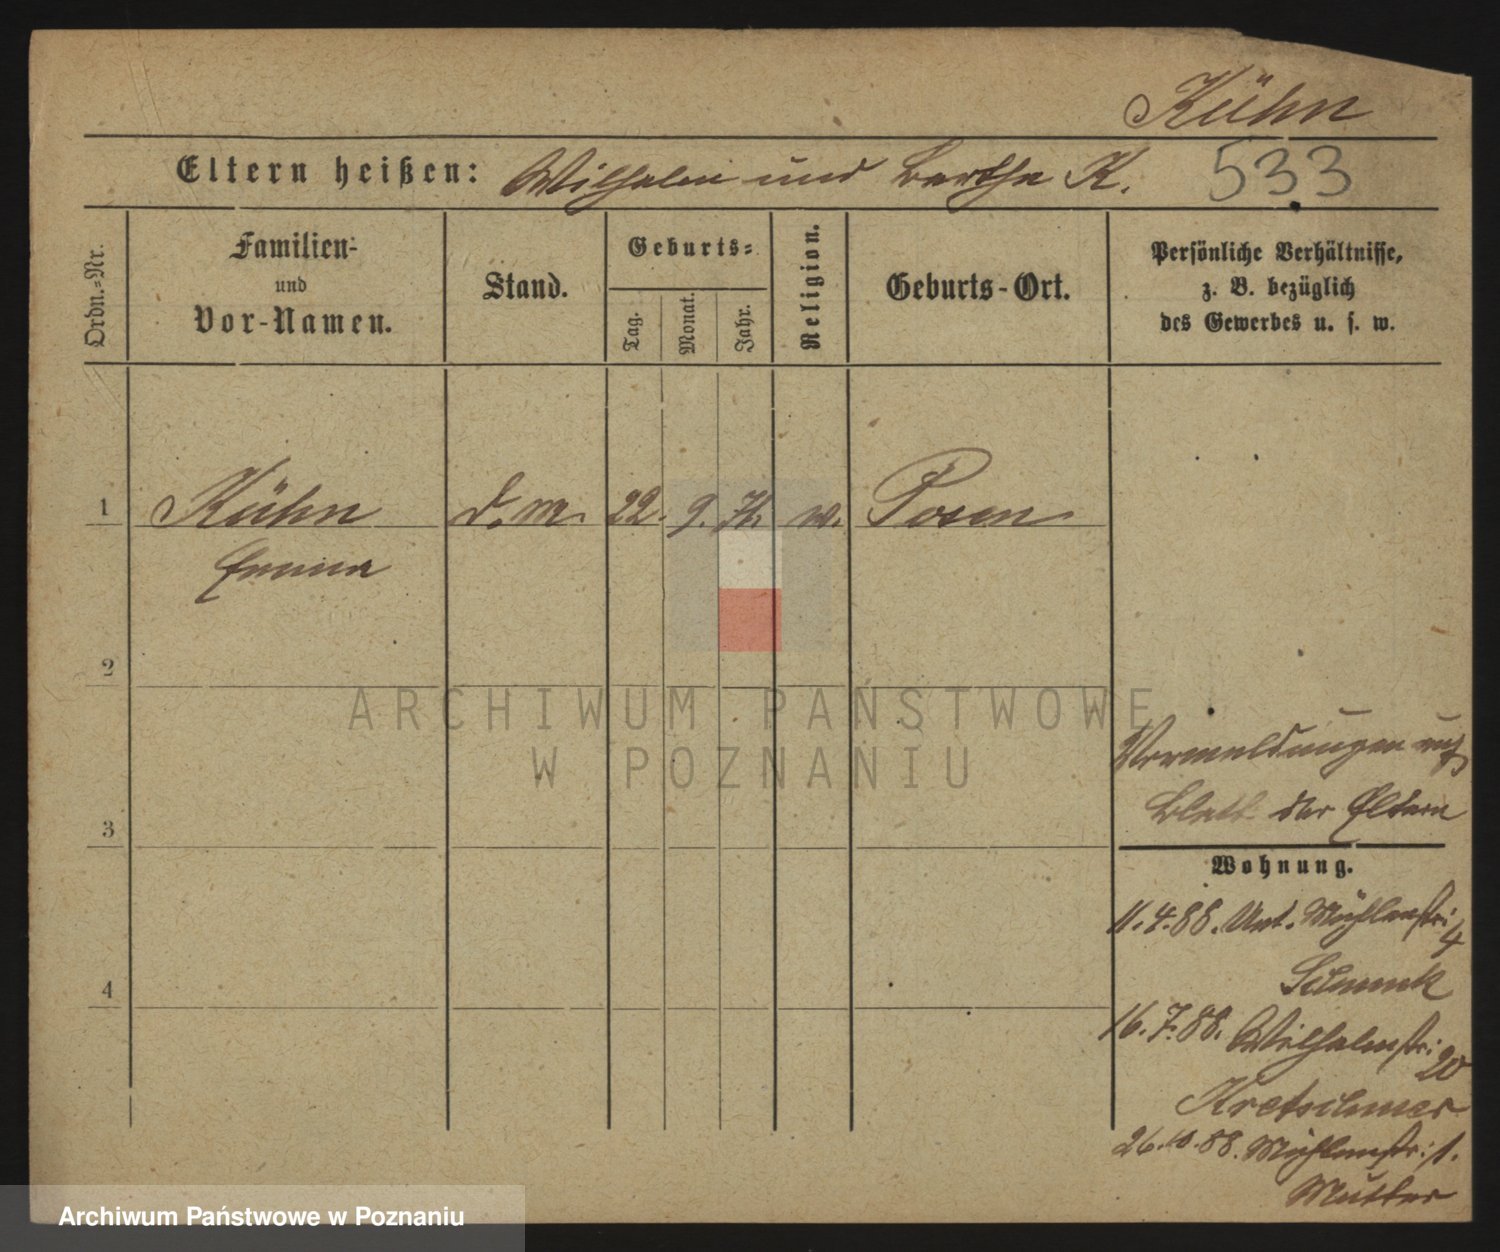 Kühn
Eltern heißen: Wilhelm und Bertha K. 533
Ordn.-Nr.
Familien-
und
Vor-Namen.
Stand.
Geburts-
Tag.
Monat.
Jahr.
Religion.
Geburts-Ort.
Persönliche Verhältnisse,
z. B. bezüglich
des Gewerbes u. s. w.
1 Kühn d. m. 22. 9. 71. w. Posen
Emma
2
3
4
ARCHIWUM PAŃSTWOWE
W POZNANIU
Vermeldungen auf
Blatt der Eltern
Wohnung.
11.4.88. Unt. Mühlenstr: 4
Schmuk
16.7.88. Wilhelmstr: 20
Kretschmer
26.10.88. Mühlenstr: 1.
Mutter
Archiwum Państwowe w Poznaniu